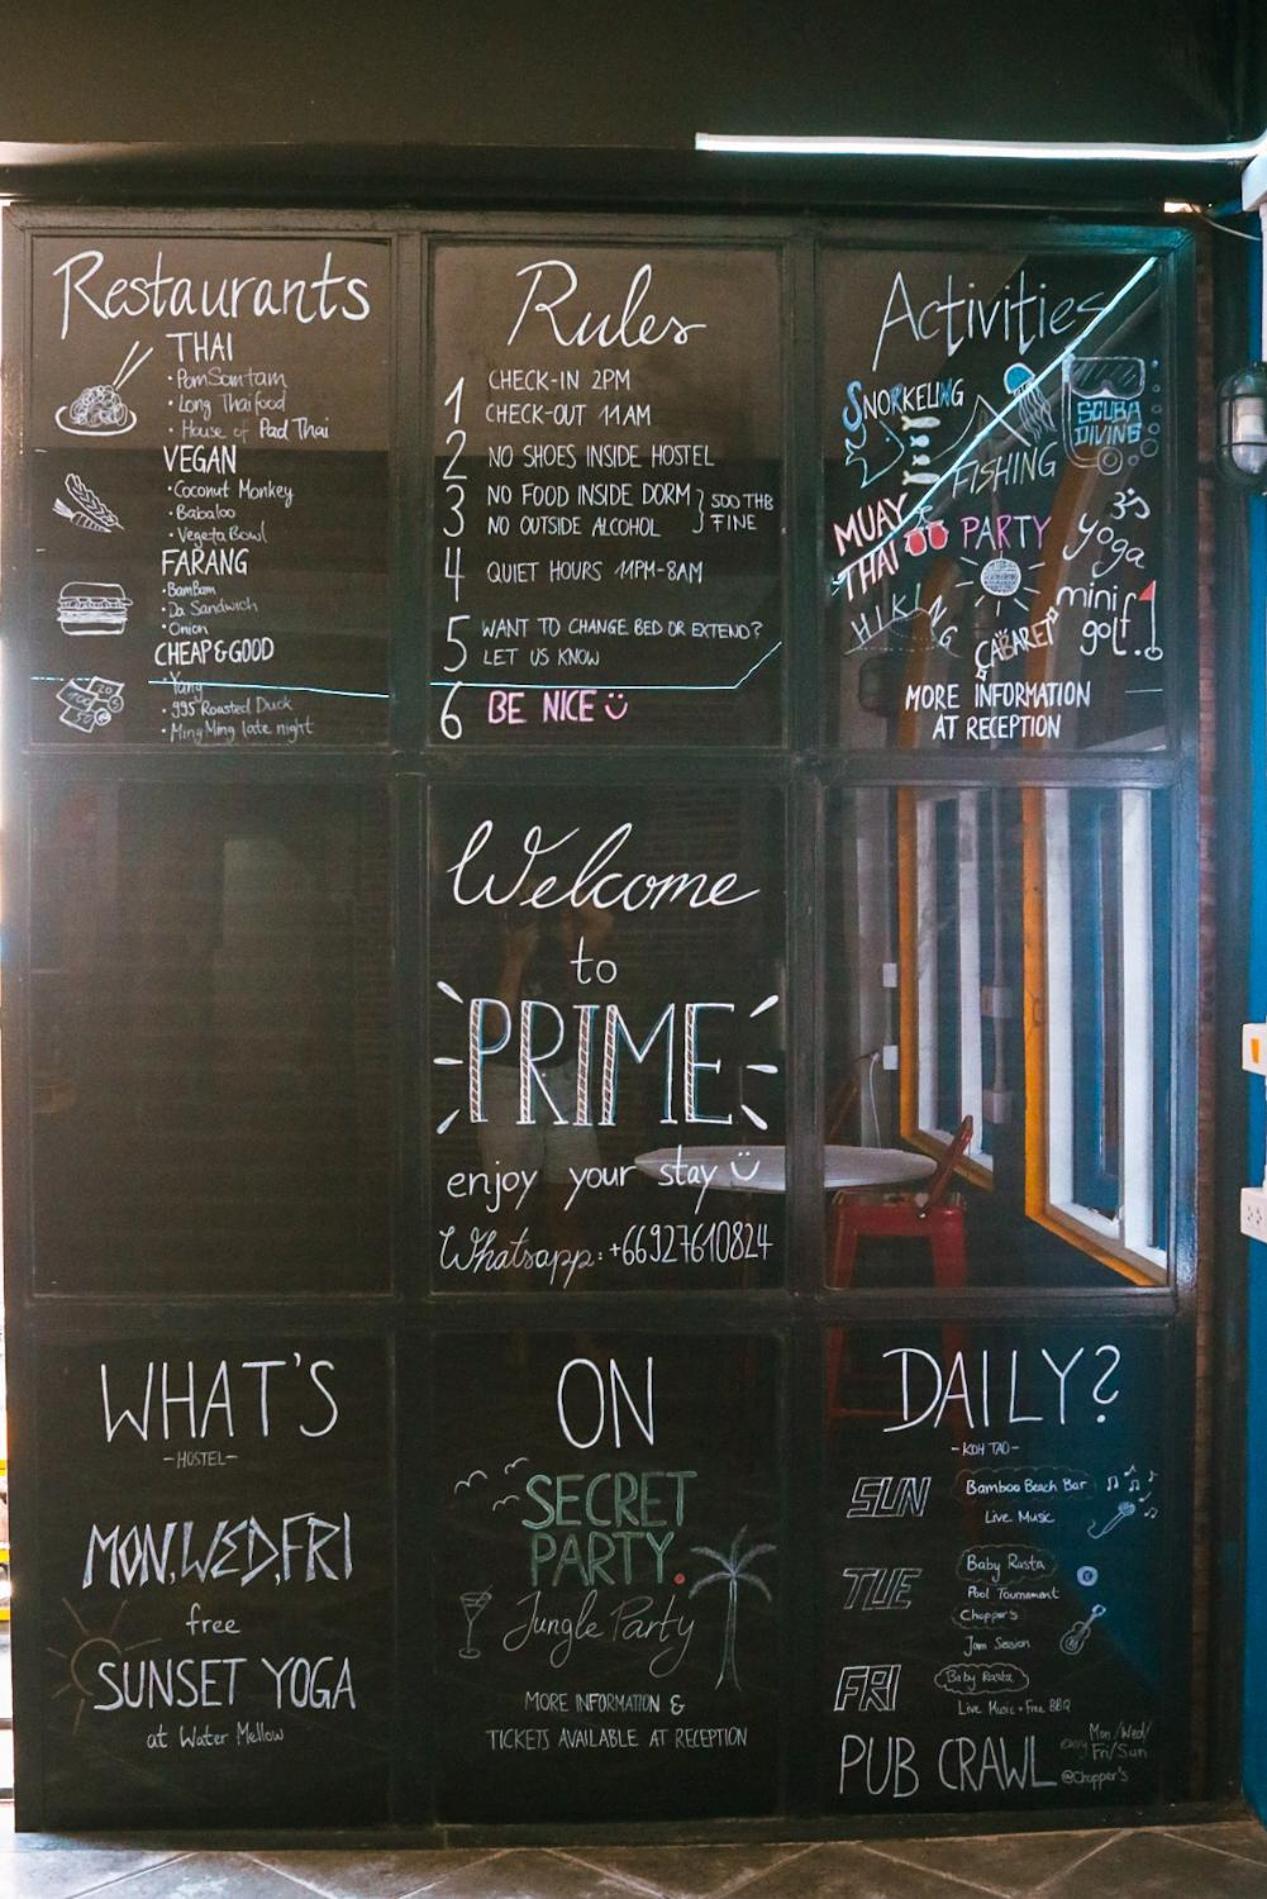 Restaurants
THAI
• PomSomtam
• Long Thaifood
• House of Pad Thai
VEGAN
• Coconut Monkey
• Babaloo
• VegetaBowl
FARANG
• BamBam
• Da Sandwich
• Onion
CHEAP&GOOD
• Yang
• 995 Roasted Duck
• Ming Ming late night
Rules
1 CHECK-IN 2PM
CHECK-OUT 11AM
2 NO SHOES INSIDE HOSTEL
3 NO FOOD INSIDE DORM
NO OUTSIDE ALCOHOL
} 500 THB
FINE
4 QUIET HOURS 11PM-8AM
5 WANT TO CHANGE BED OR EXTEND?
LET US KNOW
6 BE NICE
Activities
SNORKELING
SCUBA
DIVING
FISHING
MUAY
THAI
PARTY
ॐ
yoga
HIKING
CABARET
mini
golf
MORE INFORMATION
AT RECEPTION
Welcome
to
PRIME
enjoy your stay
Whatsapp: +66927610824
WHAT'S
-HOSTEL-
MON,WED,FRI
free
SUNSET YOGA
at Water Mellow
ON
SECRET
PARTY.
Jungle Party
MORE INFORMATION &
TICKETS AVAILABLE AT RECEPTION
DAILY?
-KOH TAO-
SUN
Bamboo Beach Bar
Live Music
TUE
Baby Rasta
Pool Tournament
Chopper's
Jam Session
FRI
Baby Rasta
Live Music + Free BBQ
PUB CRAWL
every Mon/Wed/
Fri/Sun
@Chopper's